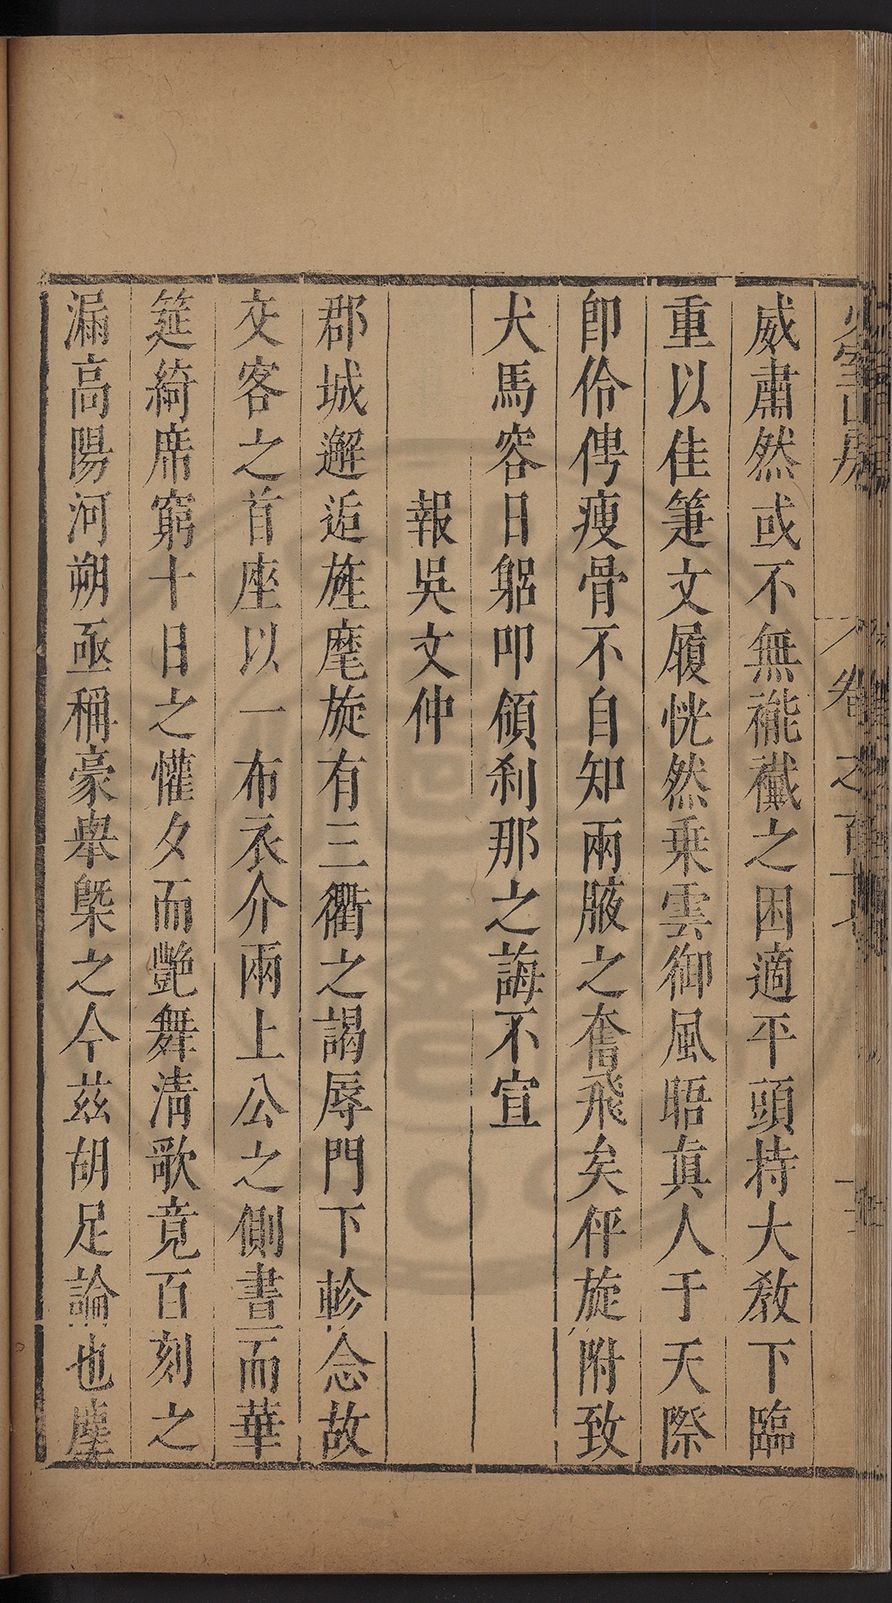 少室山房 卷之百十
威肅然或不無褦襶之困適平頭持大教下臨
重以佳箑文履恍然乗雲御風晤真人于天際
卽伶俜瘦骨不自知兩腋之奮飛矣伻旋附致
犬馬容日躬叩頌刹那之誨不宣
報吳文仲
郡城邂逅旌麾旋有三衢之謁辱門下軫念故
交客之首座以一布衣介兩上公之側書而華
筵綺席窮十日之懽夕而艷舞清歌竟百刻之
漏高陽河朔亟稱豪舉槩之今茲胡足論也塵